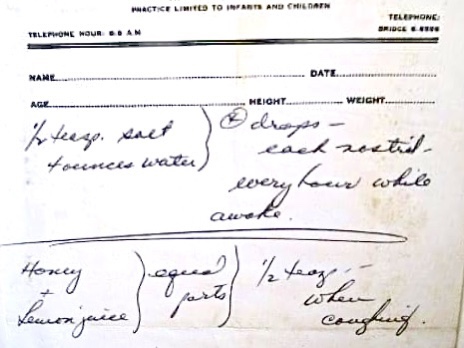 PRACTICE LIMITED TO INFANTS AND CHILDREN
TELEPHONE:
TELEPHONE HOUR: 8-9 A M
BRIDGE
NAME DATE
AGE HEIGHT WEIGHT
1/2 teasp. salt
4 ounces water
drops –
each nostril –
every hour while
awake.
Honey
+
Lemon juice
equal
parts
1/2 teasp. –
when
coughing.